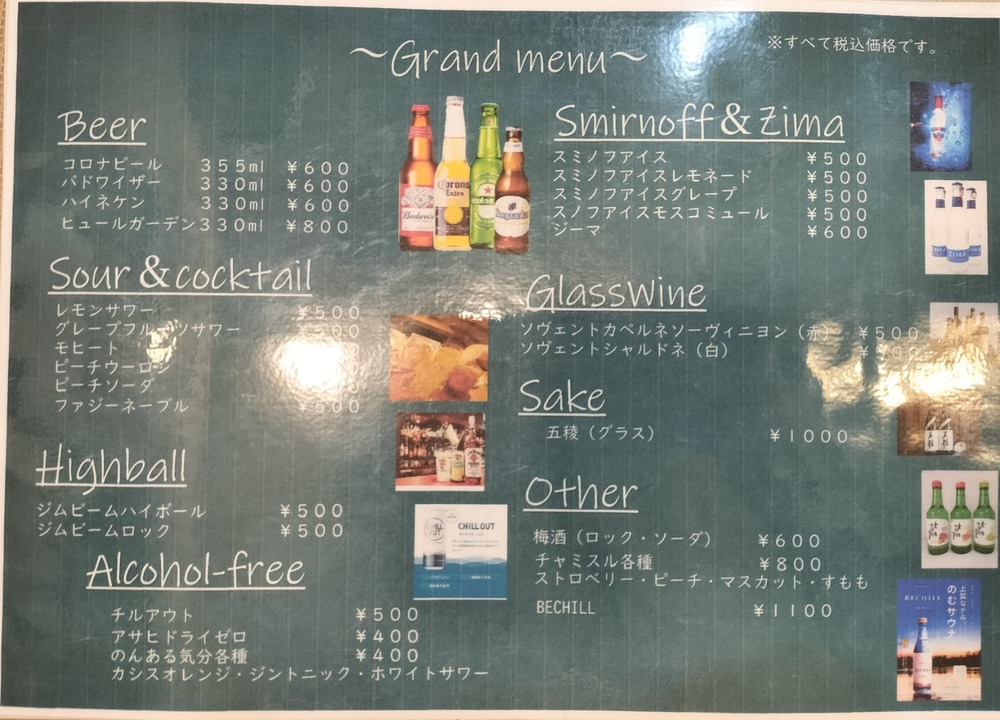 ～Grand menu～
※すべて税込価格です。
Beer
コロナビール 355ml ¥600
バドワイザー 330ml ¥600
ハイネケン 330ml ¥600
ヒュールガーデン330ml ¥800
Sour &cocktail
レモンサワー ¥500
グレープフルーツサワー ¥500
モヒート
ピーチウーロン
ピーチソーダ
ファジーネーブル ¥500
Highball
ジムビームハイボール ¥500
ジムビームロック ¥500
Alcohol-free
チルアウト ¥500
アサヒドライゼロ ¥400
のんある気分各種 ¥400
カシスオレンジ・ジントニック・ホワイトサワー
Smirnoff&Zima
スミノフアイス ¥500
スミノフアイスレモネード ¥500
スミノフアイスグレープ ¥500
スノフアイスモスコミュール ¥500
ジーマ ¥600
GlassWine
ソヴェントカベルネソーヴィニヨン（赤） ¥500
ソヴェントシャルドネ（白）
Sake
五稜（グラス） ¥1000
Other
梅酒（ロック・ソーダ） ¥600
チャミスル各種 ¥800
ストロベリー・ピーチ・マスカット・すもも
BECHILL ¥1100
Budweiser
Corona
Extra
ZIMA
CHILL OUT
CHILL OUT
BECHILL
上質なチル。
のむサウナ